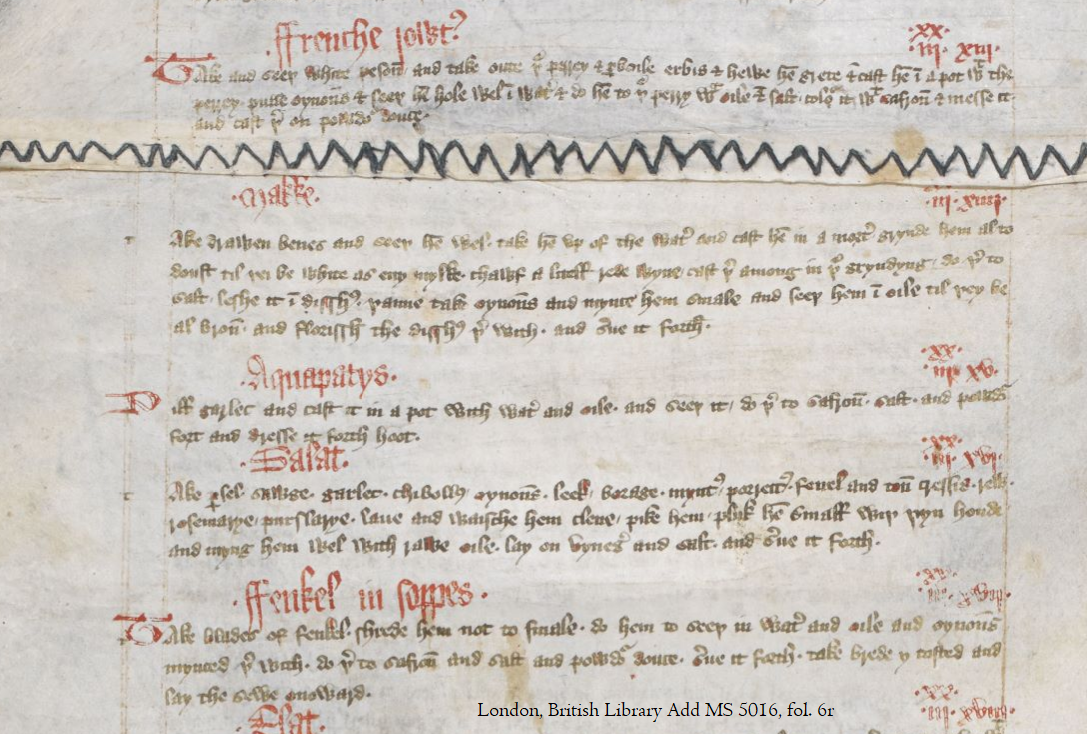 ffrenche iowt
xx iii xiii
Take and seeþ white peson and take oute þe perrey & parboile erbis & hewe hem grete & cast hem in a pot with the
perrey. pulle oynouns & seeþ hem hole wel in water & do hem to þe perrey with oile & salt. colour it with safron & messe it
and cast þeron powdour douce.
Makke.
iii xiiii
ake drawen benes and seeþ hem wel. take hem up of the water and cast hem in a morter grynde hem al to
doust til þei be white as eny mylke. chawf a litell rede wyne cast þer among in þe gryndyng. do þer to
salt. leshe it in disshes. þanne take oynouns and mynce hem smale and seeþ hem in oile til þey be
al broun. and florissh the disshes þer with. and serue it forth.
Aquapatys.
xx iiii xv.
Pill garlec and cast it in a pot with water and oile. and seeþ it, do þer to safroun. salt. and powdour
fort and dresse it forth hoot.
Salat.
xx iii xvi
ake persel. sawge. garlec. chibolles. oynouns. leek. borage. myntes. porrettes. fenel and toun cressis. rew.
rosemarye. purslarye. laue and waische hem clene. pike hem. pluk hem small wiþ þyn honde
and myng hem wel with rawe oile. lay on vyneger and salt. and serue it forth.
ffenkel in soppes.
xx iii xvii
Take blades of fenkel. shrede hem not to smale. do hem to seeþ in water and oile and oynouns
mynced þer with. do þer to safroun and salt and powdour douce. serue it forth. take brede y tosted and
lay the sewe onoward.
xx iii xviii
Elat.
London, British Library Add MS 5016, fol. 6r